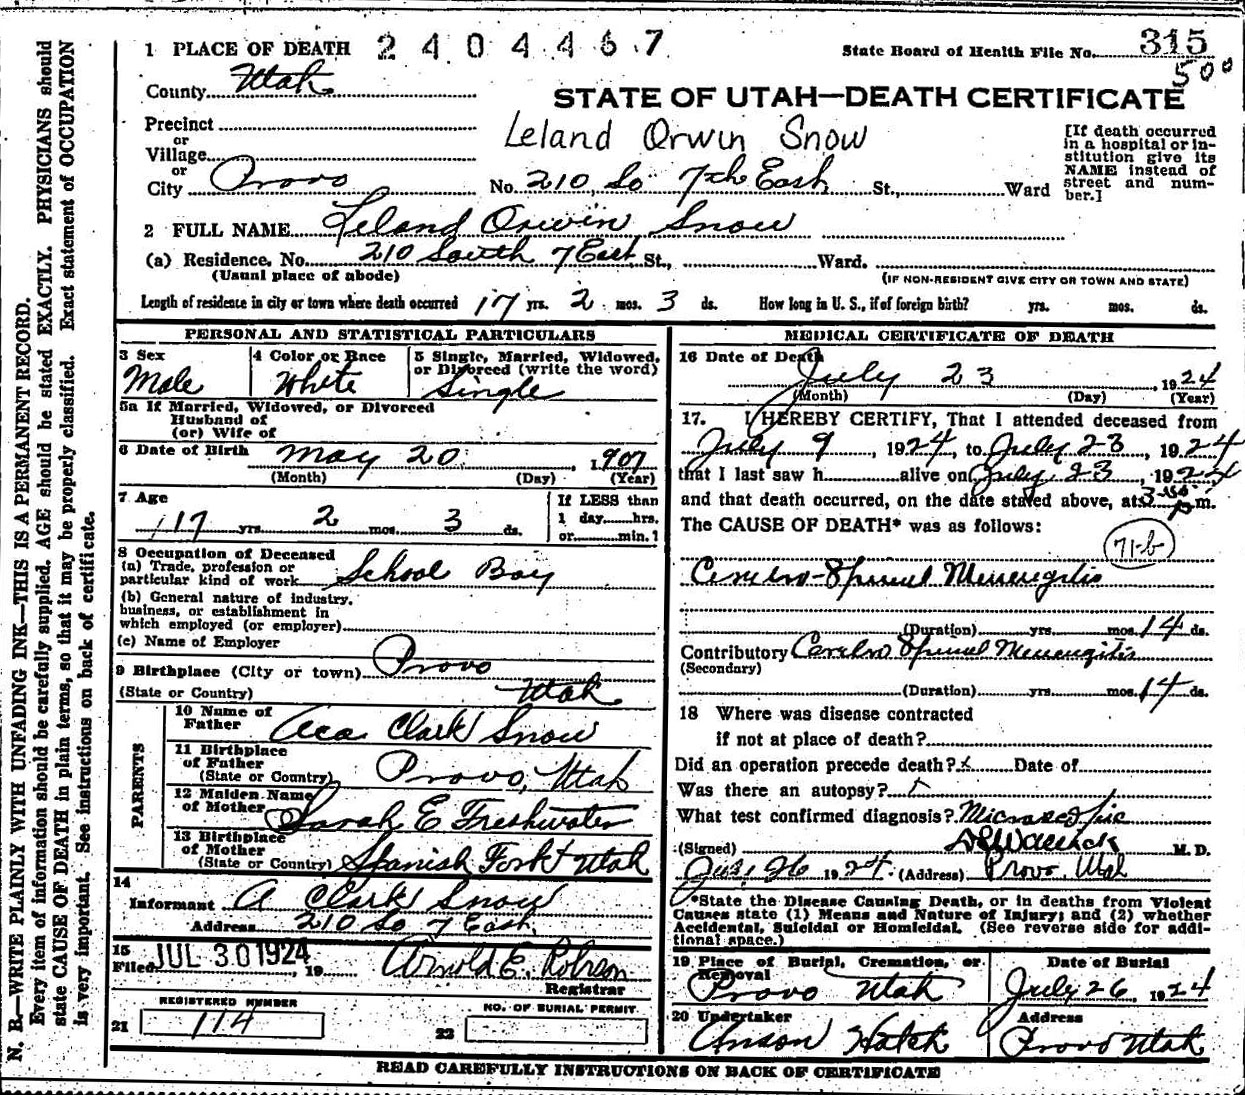 N. B.—WRITE PLAINLY WITH UNFADING INK—THIS IS A PERMANENT RECORD.
Every item of information should be carefully supplied. AGE should be stated EXACTLY. PHYSICIANS should
state CAUSE OF DEATH in plain terms, so that it may be properly classified. Exact statement of OCCUPATION
is very important. See instructions on back of certificate.
1 PLACE OF DEATH 2404467
State Board of Health File No. 315
500
County Utah
STATE OF UTAH—DEATH CERTIFICATE
Precinct
or
Village
or
City Provo
Leland Orwin Snow
No. 210 So 7th East St., Ward
[If death occurred
in a hospital or in-
stitution give its
NAME instead of
street and num-
ber.]
2 FULL NAME Leland Orwin Snow
(a) Residence. No. 210 South 7 East St., Ward.
(Usual place of abode)
(IF NON-RESIDENT GIVE CITY OR TOWN AND STATE)
Length of residence in city or town where death occurred 17 yrs. 2 mos. 3 ds. How long in U. S., if of foreign birth? yrs. mos. ds.
PERSONAL AND STATISTICAL PARTICULARS
3 Sex
Male
4 Color or Race
White
5 Single, Married, Widowed,
or Divorced (write the word)
Single
5a If Married, Widowed, or Divorced
Husband of
(or) Wife of
6 Date of Birth May 20, 1907
(Month) (Day) (Year)
7 Age
17 yrs. 2 mos. 3 ds.
If LESS than
1 day hrs.
or min.?
8 Occupation of Deceased
(a) Trade, profession or
particular kind of work School Boy
(b) General nature of industry,
business, or establishment in
which employed (or employer)
(c) Name of Employer
9 Birthplace (City or town) Provo
(State or Country) Utah
PARENTS
10 Name of
Father Aca Clark Snow
11 Birthplace
of Father
(State or Country) Provo, Utah
12 Maiden Name
of Mother Sarah E Freshwater
13 Birthplace
of Mother
(State or Country) Spanish Fork Utah
14
Informant A Clark Snow
Address 210 So 7 East
15
Filed JUL 30 1924, 19
Arnold E. Robison
Registrar
REGISTERED NUMBER
21 114
NO. OF BURIAL PERMIT
22
MEDICAL CERTIFICATE OF DEATH
16 Date of Death
July 23, 1924
(Month) (Day) (Year)
17. I HEREBY CERTIFY, That I attended deceased from
July 9, 1924, to July 23, 1924
that I last saw h alive on July 23, 1924
and that death occurred, on the date stated above, at 3 P m.
The CAUSE OF DEATH* was as follows:
71-b
Cerebro-Spinal Meningitis
(Duration) yrs. mos. 14 ds.
Contributory Cerebro Spinal Meningitis
(Secondary)
(Duration) yrs. mos. 14 ds.
18 Where was disease contracted
if not at place of death?
Did an operation precede death? Date of
Was there an autopsy?
What test confirmed diagnosis? Microscopic
(Signed) M. D.
July 26 1924. (Address) Provo, Utah
*State the Disease Causing Death, or in deaths from Violent
Causes state (1) Means and Nature of Injury; and (2) whether
Accidental, Suicidal or Homicidal. (See reverse side for addi-
tional space.)
19 Place of Burial, Cremation, or
Removal
Provo Utah
Date of Burial
July 26, 1924
20 Undertaker
Anson Hatch
Address
Provo Utah
READ CAREFULLY INSTRUCTIONS ON BACK OF CERTIFICATE